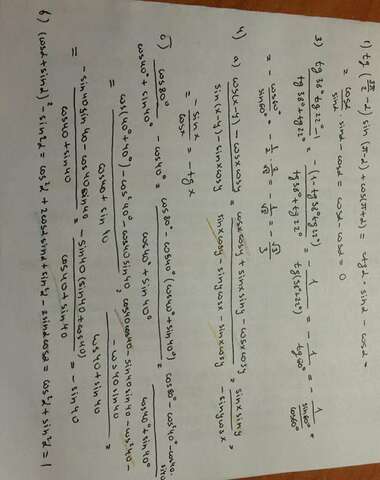 1) tg (3π/2 - α) · sin (π-α) + cos(π+α) = ctgα · sinα - cosα =
= cosα/sinα · sinα - cosα = cosα - cosα = 0
3) (tg38° tg22° - 1)/(tg38° + tg22°) = -(1 - tg38° tg22°)/(tg38° + tg22°) = - 1/tg(38°+22°) = - 1/tg60° = - 1/(sin60°/cos60°) =
= - cos60°/sin60° = - 1/2 · 2/√3 = - 1/√3 = - √3/3
4) a) (cos(x-y) - cosxcosy)/(sin(x-y) - sinxcosy) = (cosxcosy + sinxsiny - cosxcosy)/(sinxcosy - sinycosx - sinxcosy) = sinxsiny/(-sinycosx) =
= -sinx/cosx = -tgx
б) cos80°/(cos40° + sin40°) - cos40° = (cos80° - cos40°(cos40° + sin40°))/(cos40° + sin40°) = (cos80° - cos²40° - cos40·sin40)/(cos40° + sin40°) =
= (cos(40°+40°) - cos²40° - cos40 sin40)/(cos40 + sin40) = (cos40cos40 - sin40sin40 - cos²40 - cos40sin40)/(cos40+sin40) =
= (-sin40sin40 - cos40sin40)/(cos40 + sin40) = -sin40(sin40+cos40)/(cos40+sin40) = -sin40
6) (cosα+sinα)² - sin2α = cos²α + 2cosα sinα + sin²α - 2sinαcosα = cos²α + sin²α = 1